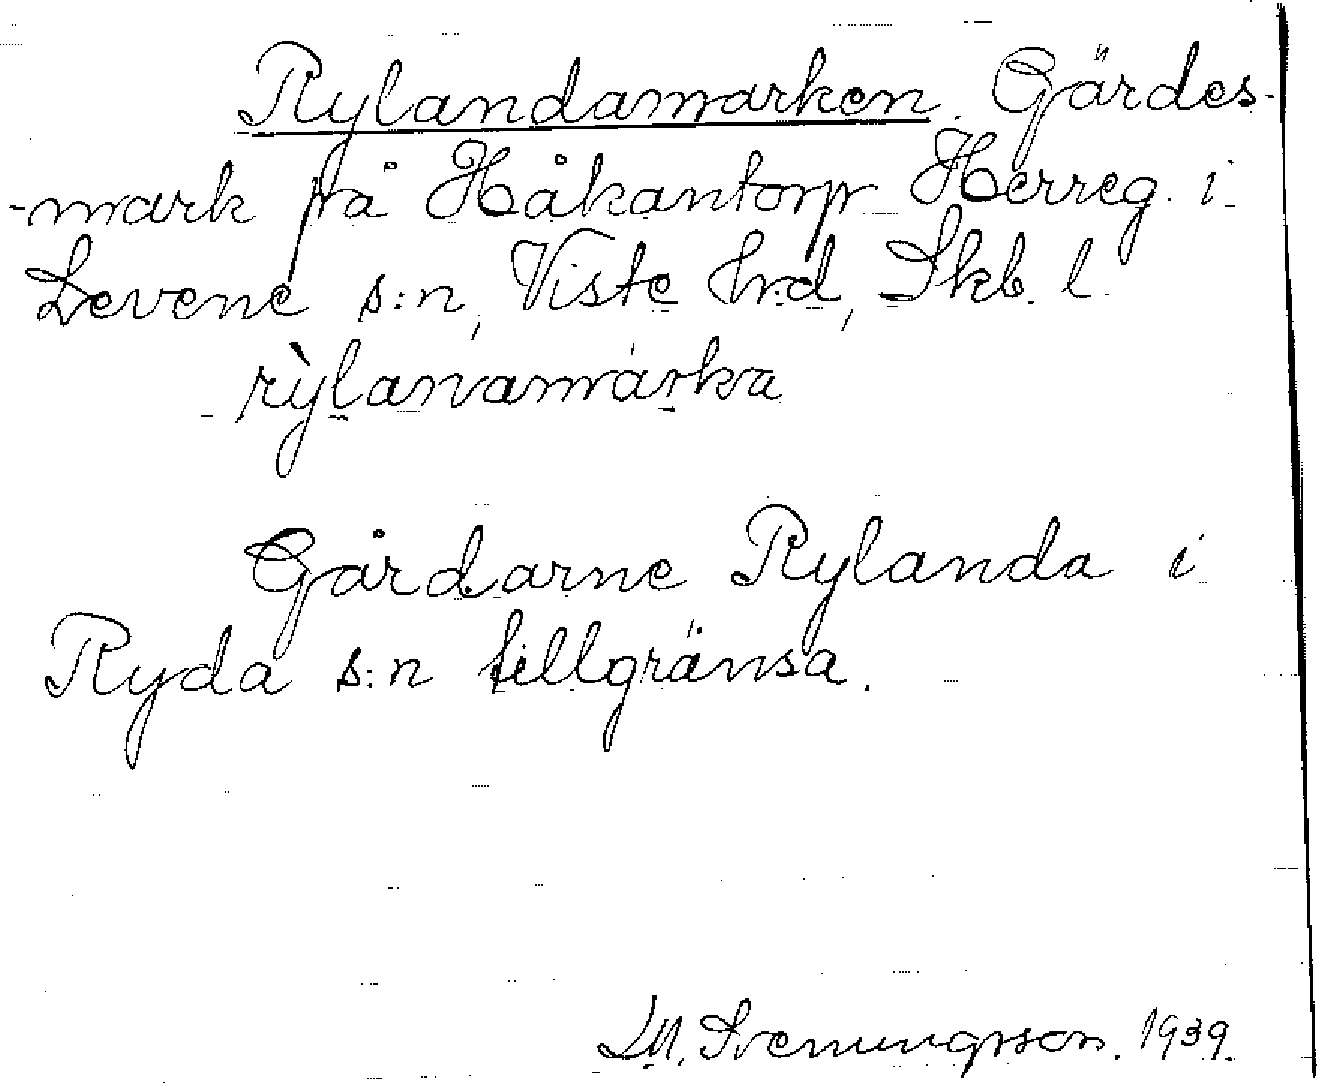 Rylandamarken. Gärdes-
-mark på Håkantorp Herreg. i
Levene s:n, Viste hrd, Skb. l.
rỳlanamárka
Gårdarne Rylanda i
Ryda s:n tillgränsa.
Sveningsson. 1939.